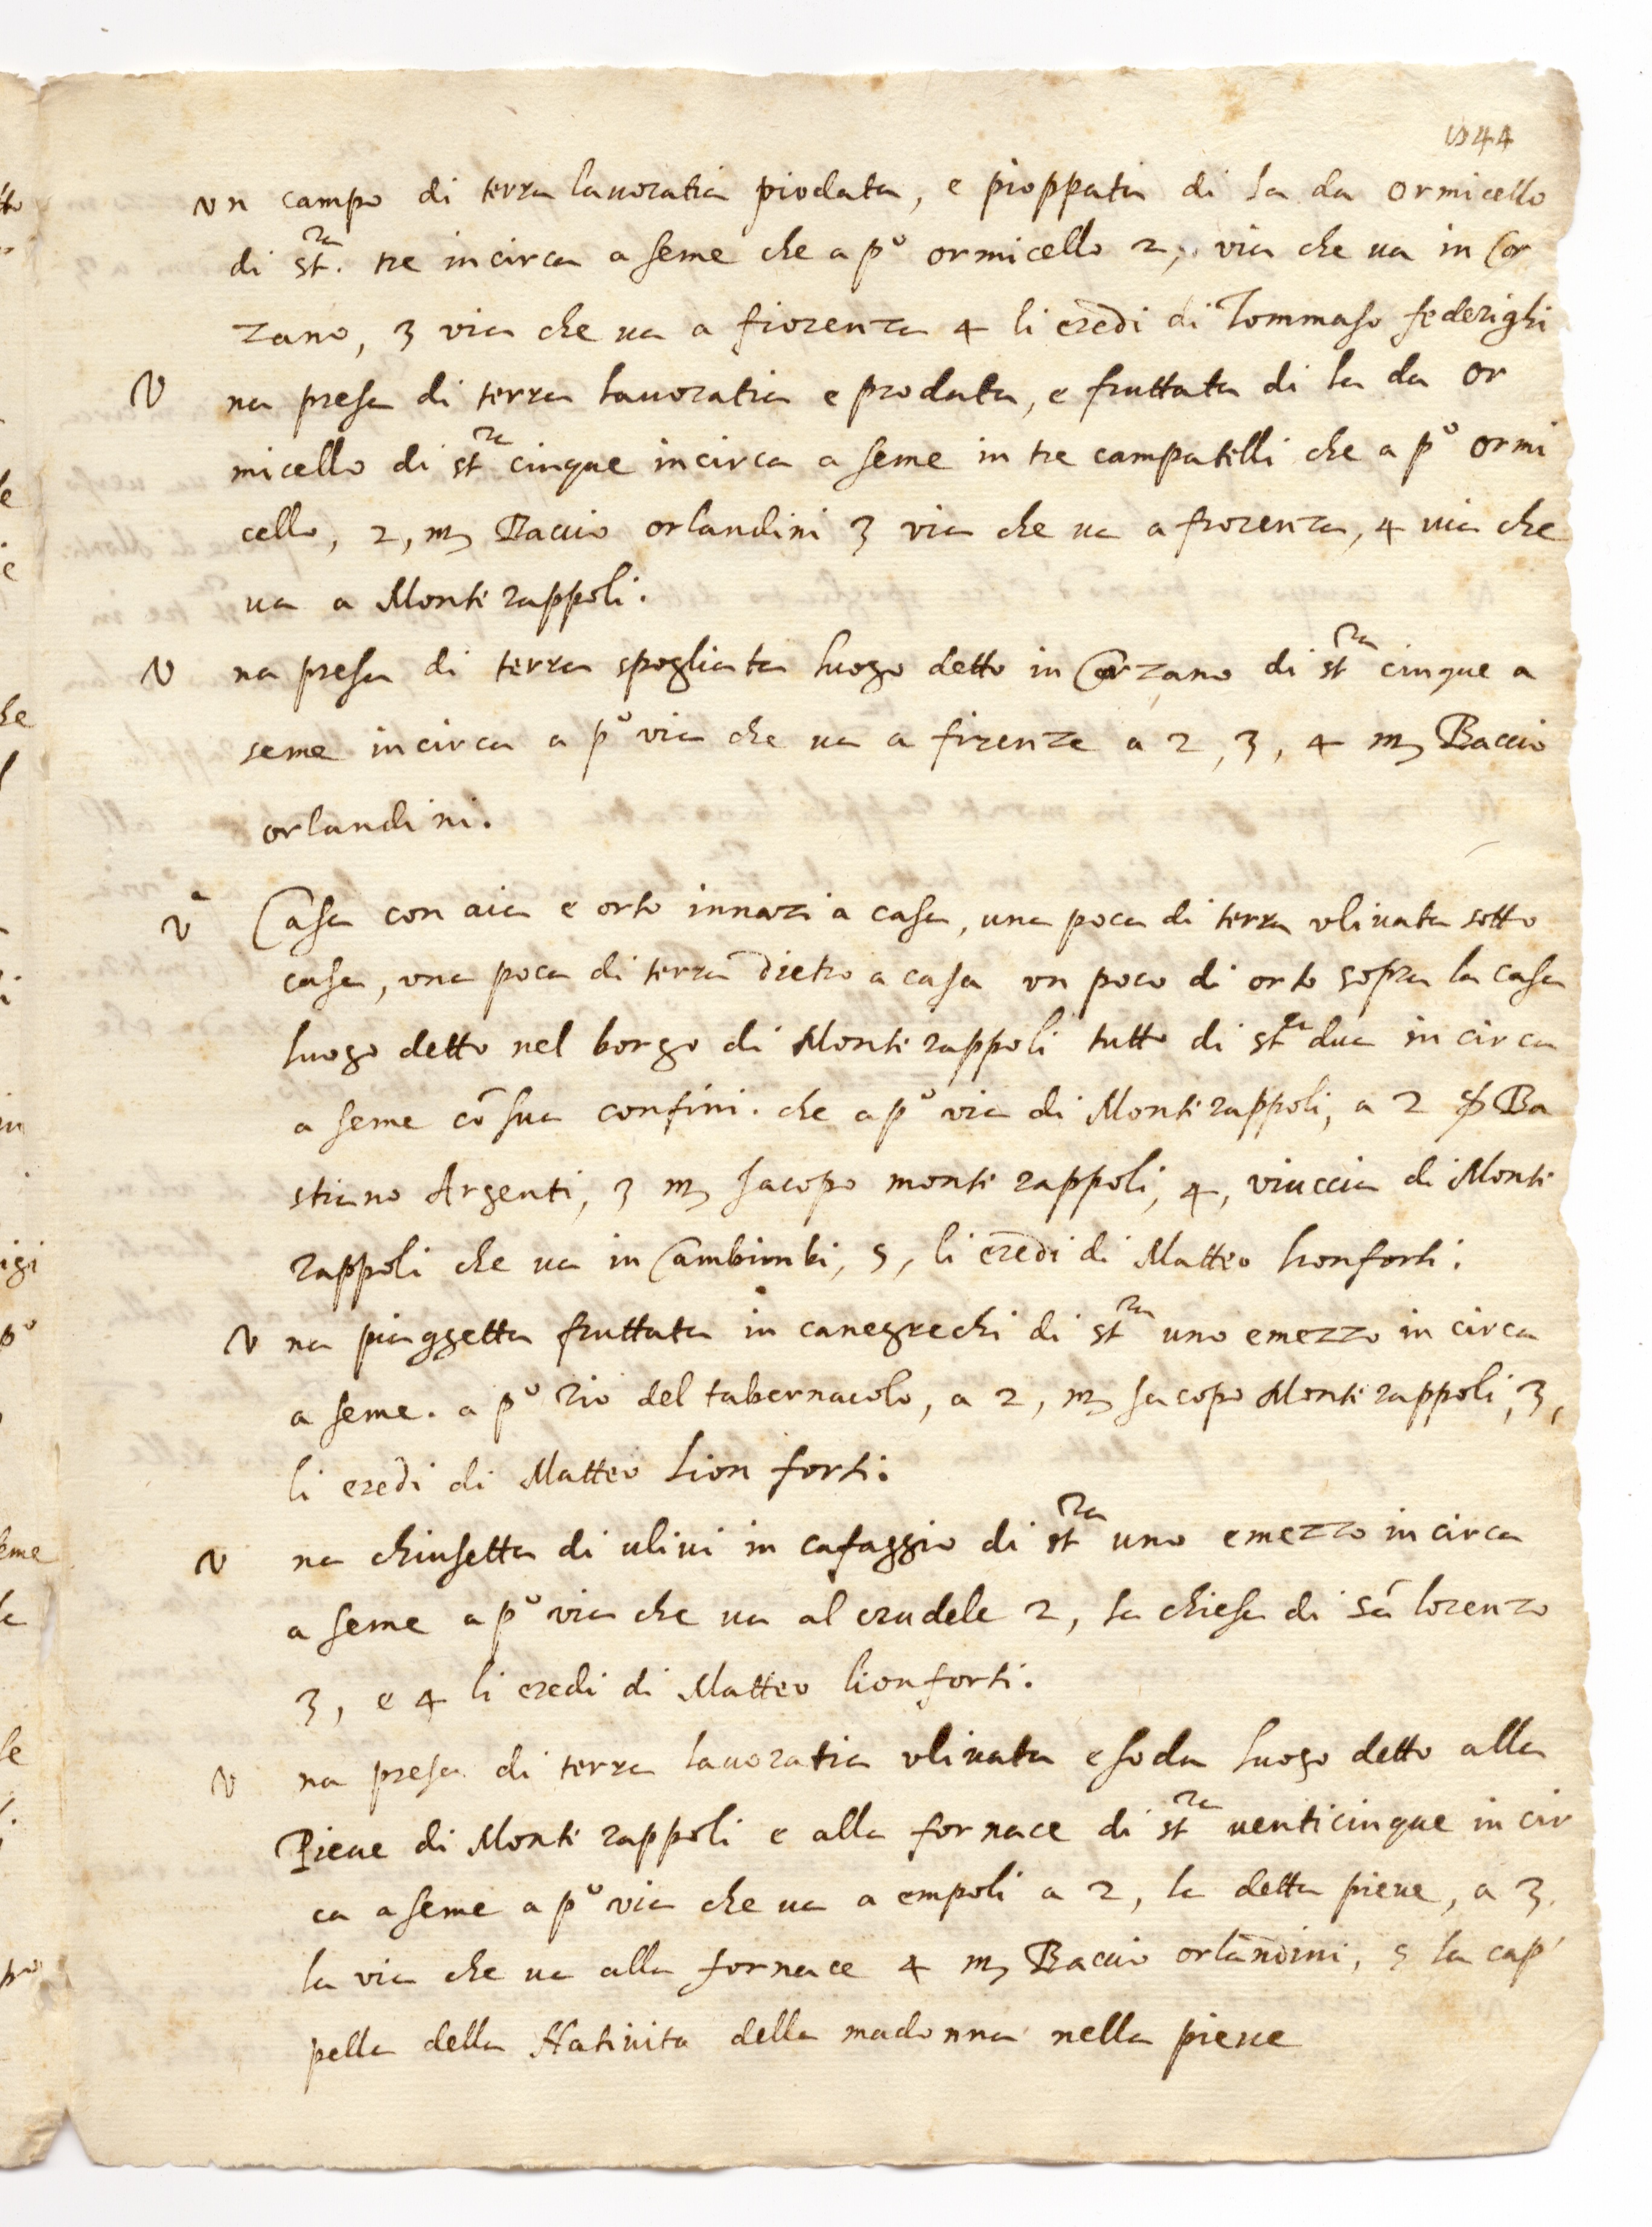 44
vn campo di terra lauoratia piodata, e pioppata di la da ormicello
di st.ra tre incirca a seme che a po ormicello 2, via che ua in Cor
zano, 3 via che ua a fiorenza 4 li eredi di Tommaso federighi
V na presa di terra lauoratia e prodata, e fruttata di la da or
micello di stra cinque incirca a seme in tre campatelli che a po ormi
cello, 2, m Baccio orlandini 3 via che ua a fiorenza, 4 uia che
ua a Monti rappoli.
V na presa di terra spogliata luogo detto in Corzano di stra cinque a
seme incirca a po via che ua a firenze a 2, 3, 4 m Baccio
orlandini.
va Casa con aia e orto innazi a casa, una poca di terra vliuata sotto
casa, vna poca di terra dietro a casa vn poco di orto sopra la casa
luogo detto nel borgo di Monti rappoli tutto di stra dua in circa
a seme cō sua confini. che a po via di Monti rappoli, a 2 Ba
stiano Argenti, 3 m Jacopo monti rappoli, 4, viuccia di Monti
rappoli che ua in Cambimbi, 5, li eredi di Matteo lionforti.
V na piaggetta fruttata in canegrechi di stra uno emezzo in circa
a seme. a po rio del tabernacolo, a 2, m Jacopo Monti rappoli, 3,
li eredi di Matteo lion forti.
V na chiusetta di uliui in cafaggio di stra uno emezzo in circa
a seme a po via che ua al crudele 2, la chiesa di sā lorenzo
3, e 4 li eredi di Matteo lionforti.
V na presa di terra lauoratia vliuata e soda luogo detto alla
Pieue di Monti rappoli e alla fornace di stra uenticinque in cir
ca a seme a po via che ua a empoli a 2, la detta pieue, a 3.
la via che ua alla fornace 4 m Baccio orlandini, 5 la cap
pella della Natiuita della madonna nella pieue